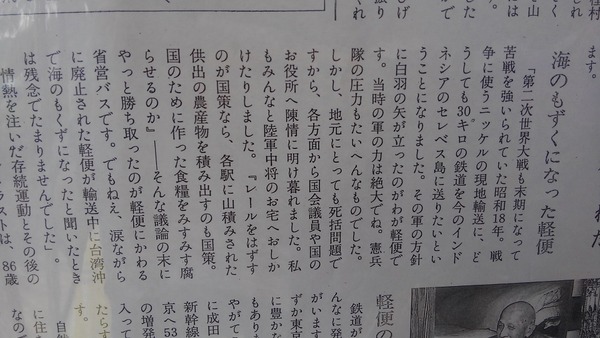 ます。
海のもずくになった軽便
「第二次世界大戦も末期になって
苦戦を強いられていた昭和18年。戦
争に使うニッケルの現地輸送に、ど
うしても30キロの鉄道を今のインド
ネシアのセレベス島に送りたいとい
うことになりました。その軍の方針
に白羽の矢が立ったのがわが軽便で
す。当時の軍の力は絶大でね。憲兵
隊の圧力もたいへんなものでした。
しかし、地元にとっても死活問題で
すから、各方面から国会議員や国の
お役所へ陳情に明け暮れました。私
もみんなと陸軍中将のお宅へおしか
けたりしました。『レールをはずす
のが国策なら、各駅に山積みされた
供出の農産物を積み出すのも国策。
国のために作った食糧をみすみす腐
らせるのか』――そんな議論の末に
やっと勝ち取ったのが軽便にかわる
省営バスです。でもねえ、涙ながら
に廃止された軽便が輸送中に台湾沖
で海のもくずになったと聞いたとき
は残念でたまりませんでした」。
情熱を注いだ存続運動とその後の
ラストは、86歳
軽便の
鉄道が
んなに発
がいます
ずか東京
に豊かな
もあり
やがて
に成田
新幹線
の増発
京へ53
入って
たらす
す。
自然
に住
なの